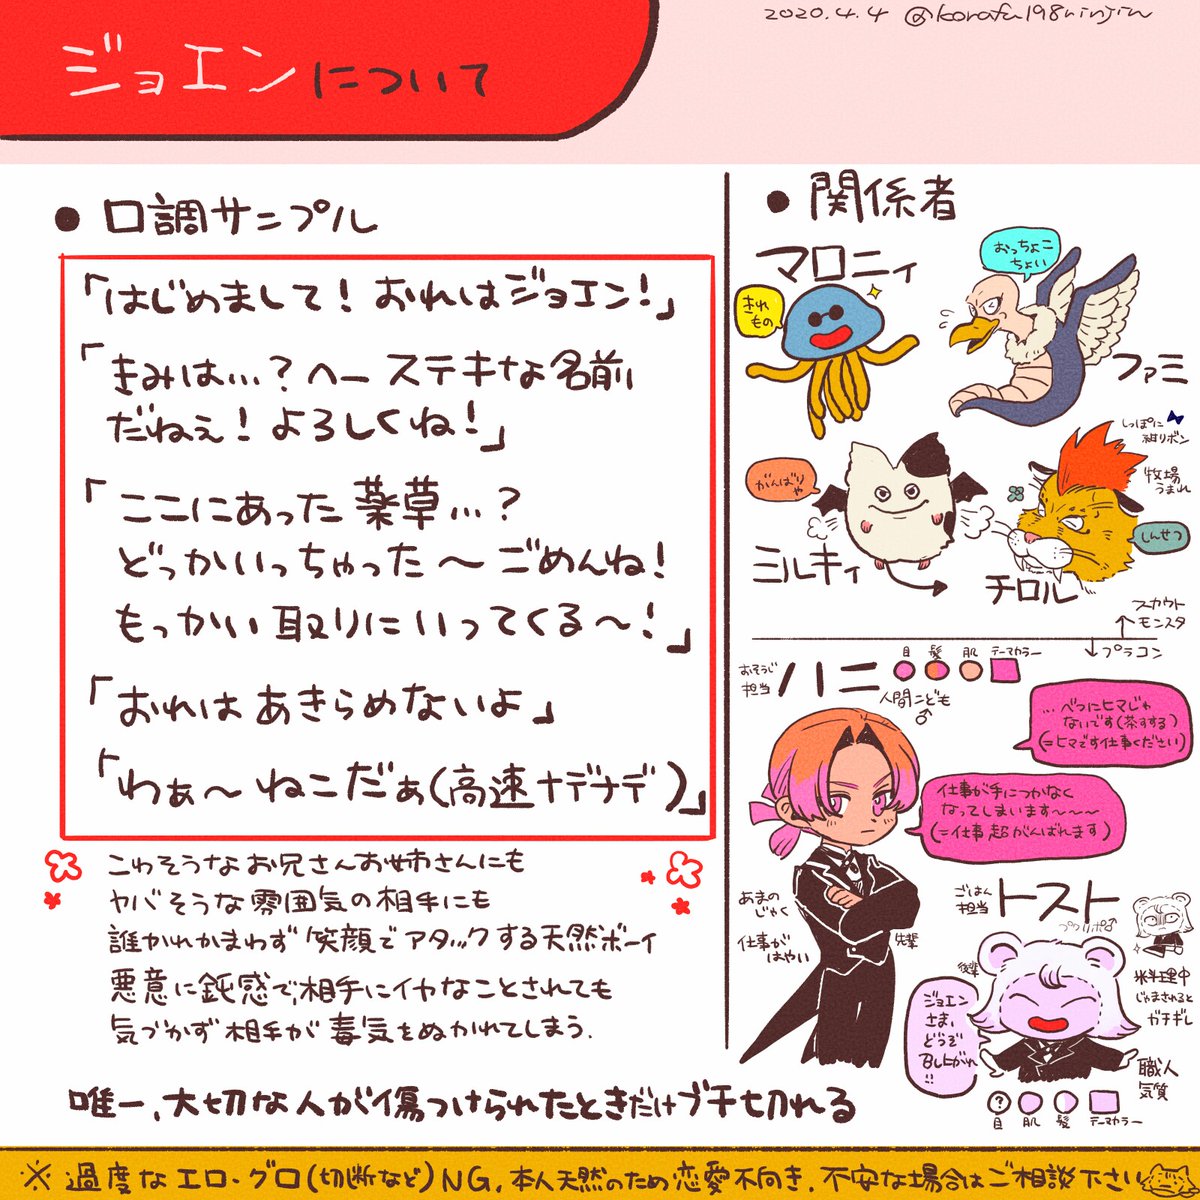 2020.4.4 @korofu198ninjin
ジョエンについて
● 口調サンプル
「はじめまして！おれはジョエン！」
「きみは…？へー ステキな名前
だねぇ！よろしくね！」
「ここにあった薬草…？
どっかいっちゃった〜ごめんね！
もっかい取りにいってくる〜！」
「おれはあきらめないよ」
「わぁ〜ねこだぁ(高速ナデナデ)」
こわそうなお兄さんお姉さんにも
ヤバそうな雰囲気の相手にも
誰かれかまわず笑顔でアタックする天然ボーイ
悪意に鈍感で、相手にイヤなことされても
気づかず相手が毒気をぬかれてしまう.
唯一、大切な人が傷つけられたときだけブチ切れる
● 関係者
マロニィ
きれ
もの
おっちょこ
ちょい
ファミ
しっぽに
紺リボン
がんばり
や
ミルキィ
牧場
うまれ
しんせつ
チロル
スカウト
モンスタ
プラコン
おそうじ
担当
ハニ
目 髪 肌 テーマカラー
人間こども
♂
…べつにヒマじゃ
ないです(茶すする)
(=ヒマです仕事ください)
仕事が手につかなく
なってしまいます〜〜〜
(=仕事超がんばれます)
あまの
じゃく
仕事が
はやい
先輩
ごはん
担当
トスト
プクリポ♂
後輩
料理中
じゃまされると
ガチギレ
ジョエン
さま、
どうぞ
召し上がれ
!!
職人
気質
?
目 肌 髪 テーマカラー
※過度なエロ・グロ(切断など)NG. 本人天然のため恋愛不向き. 不安な場合はご相談下さい